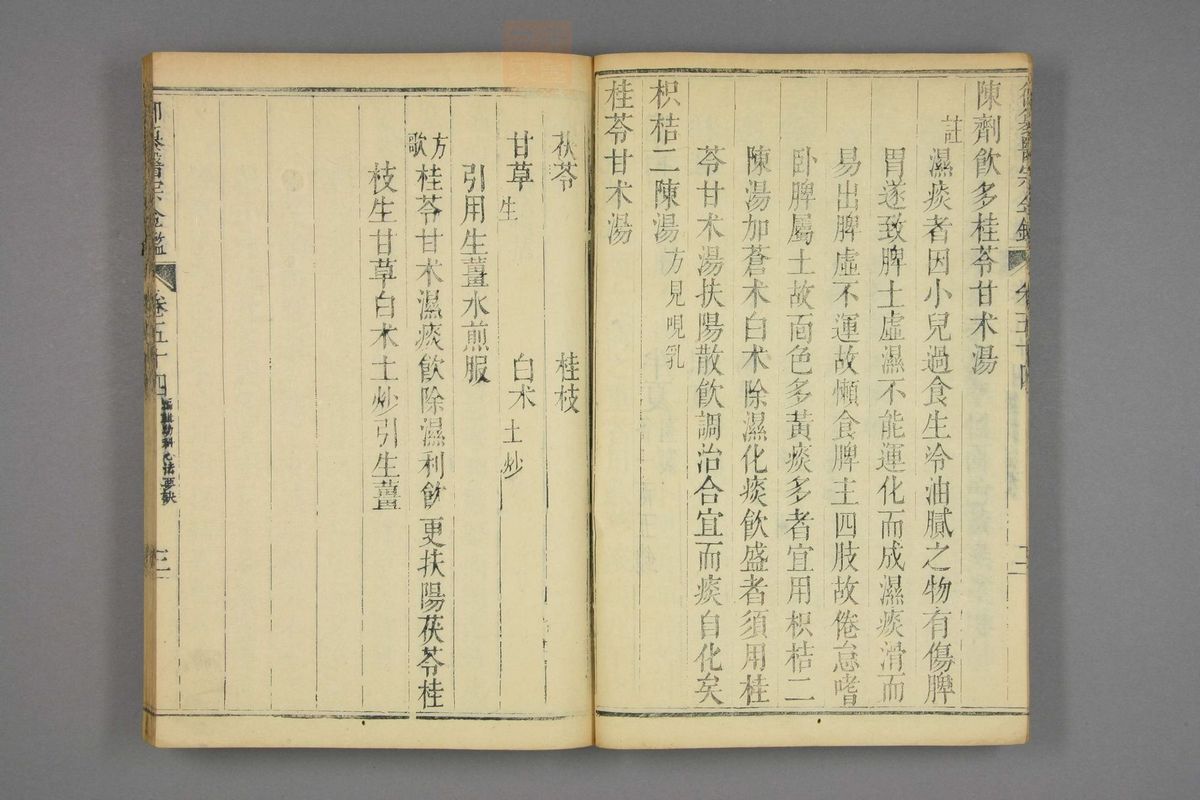 陳劑飲多桂苓甘术湯
註
濕痰者因小兒過食生冷油膩之物有傷脾
胃遂致脾土虛濕不能運化而成濕痰滑而
易出脾虛不運故懶食脾主四肢故倦怠嗜
卧脾屬土故面色多黃痰多者宜用枳桔二
陳湯加蒼术白术除濕化痰飲盛者須用桂
苓甘术湯扶陽散飲調治合宜而痰自化矣
枳桔二陳湯方見哯乳
桂苓甘术湯
茯苓 桂枝
甘草生 白术土炒
引用生薑水煎服
方歌
桂苓甘术濕痰飲除濕利飲更扶陽茯苓桂
枝生甘草白术土炒引生薑
醫宗金鑑 卷五十四 幼科心法要訣 三